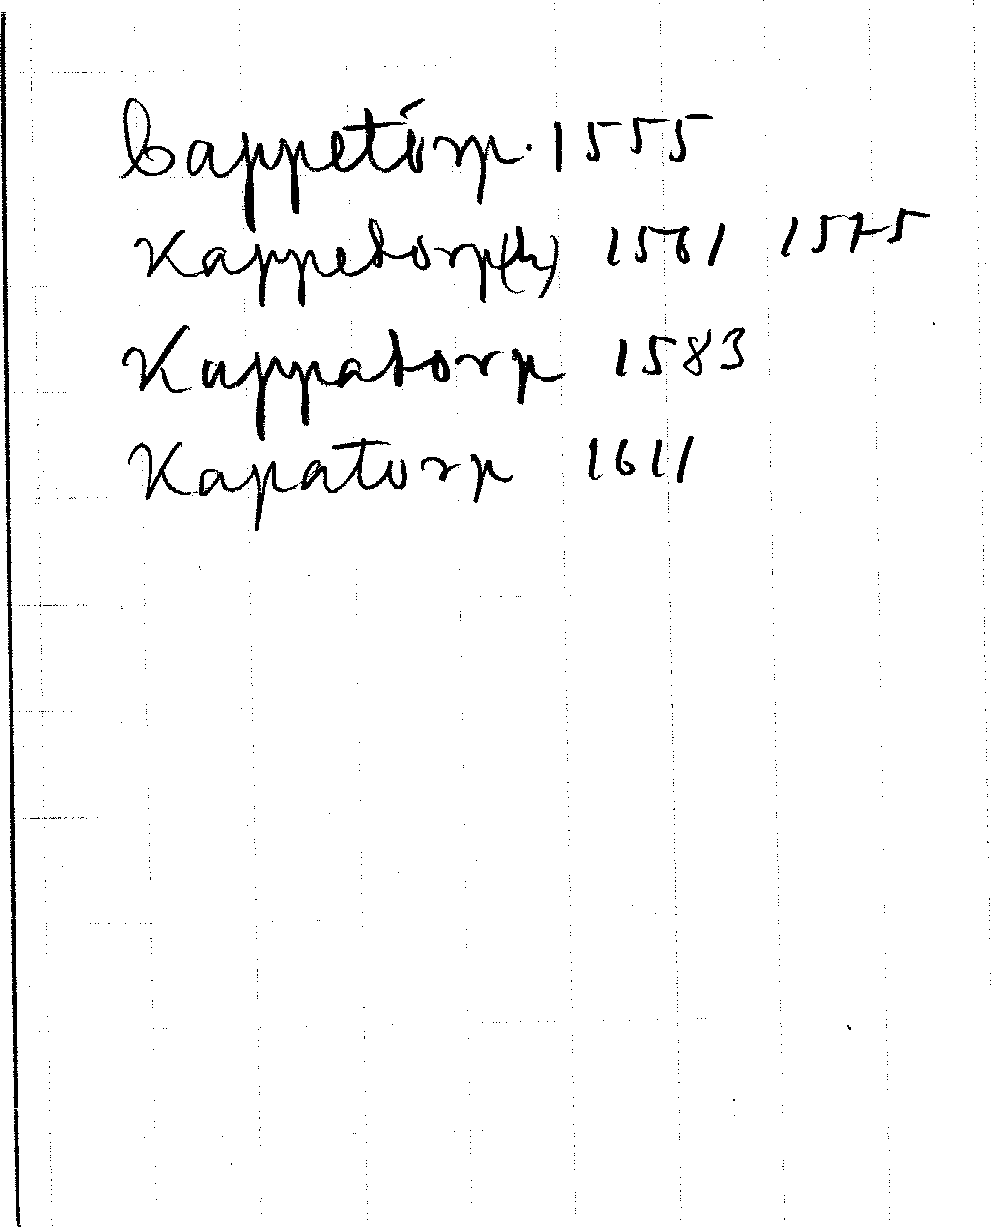 Cappetorp. 1555
Kappetorp(h) 1561 1575
Kappatorp 1583
Kapatorp 1611